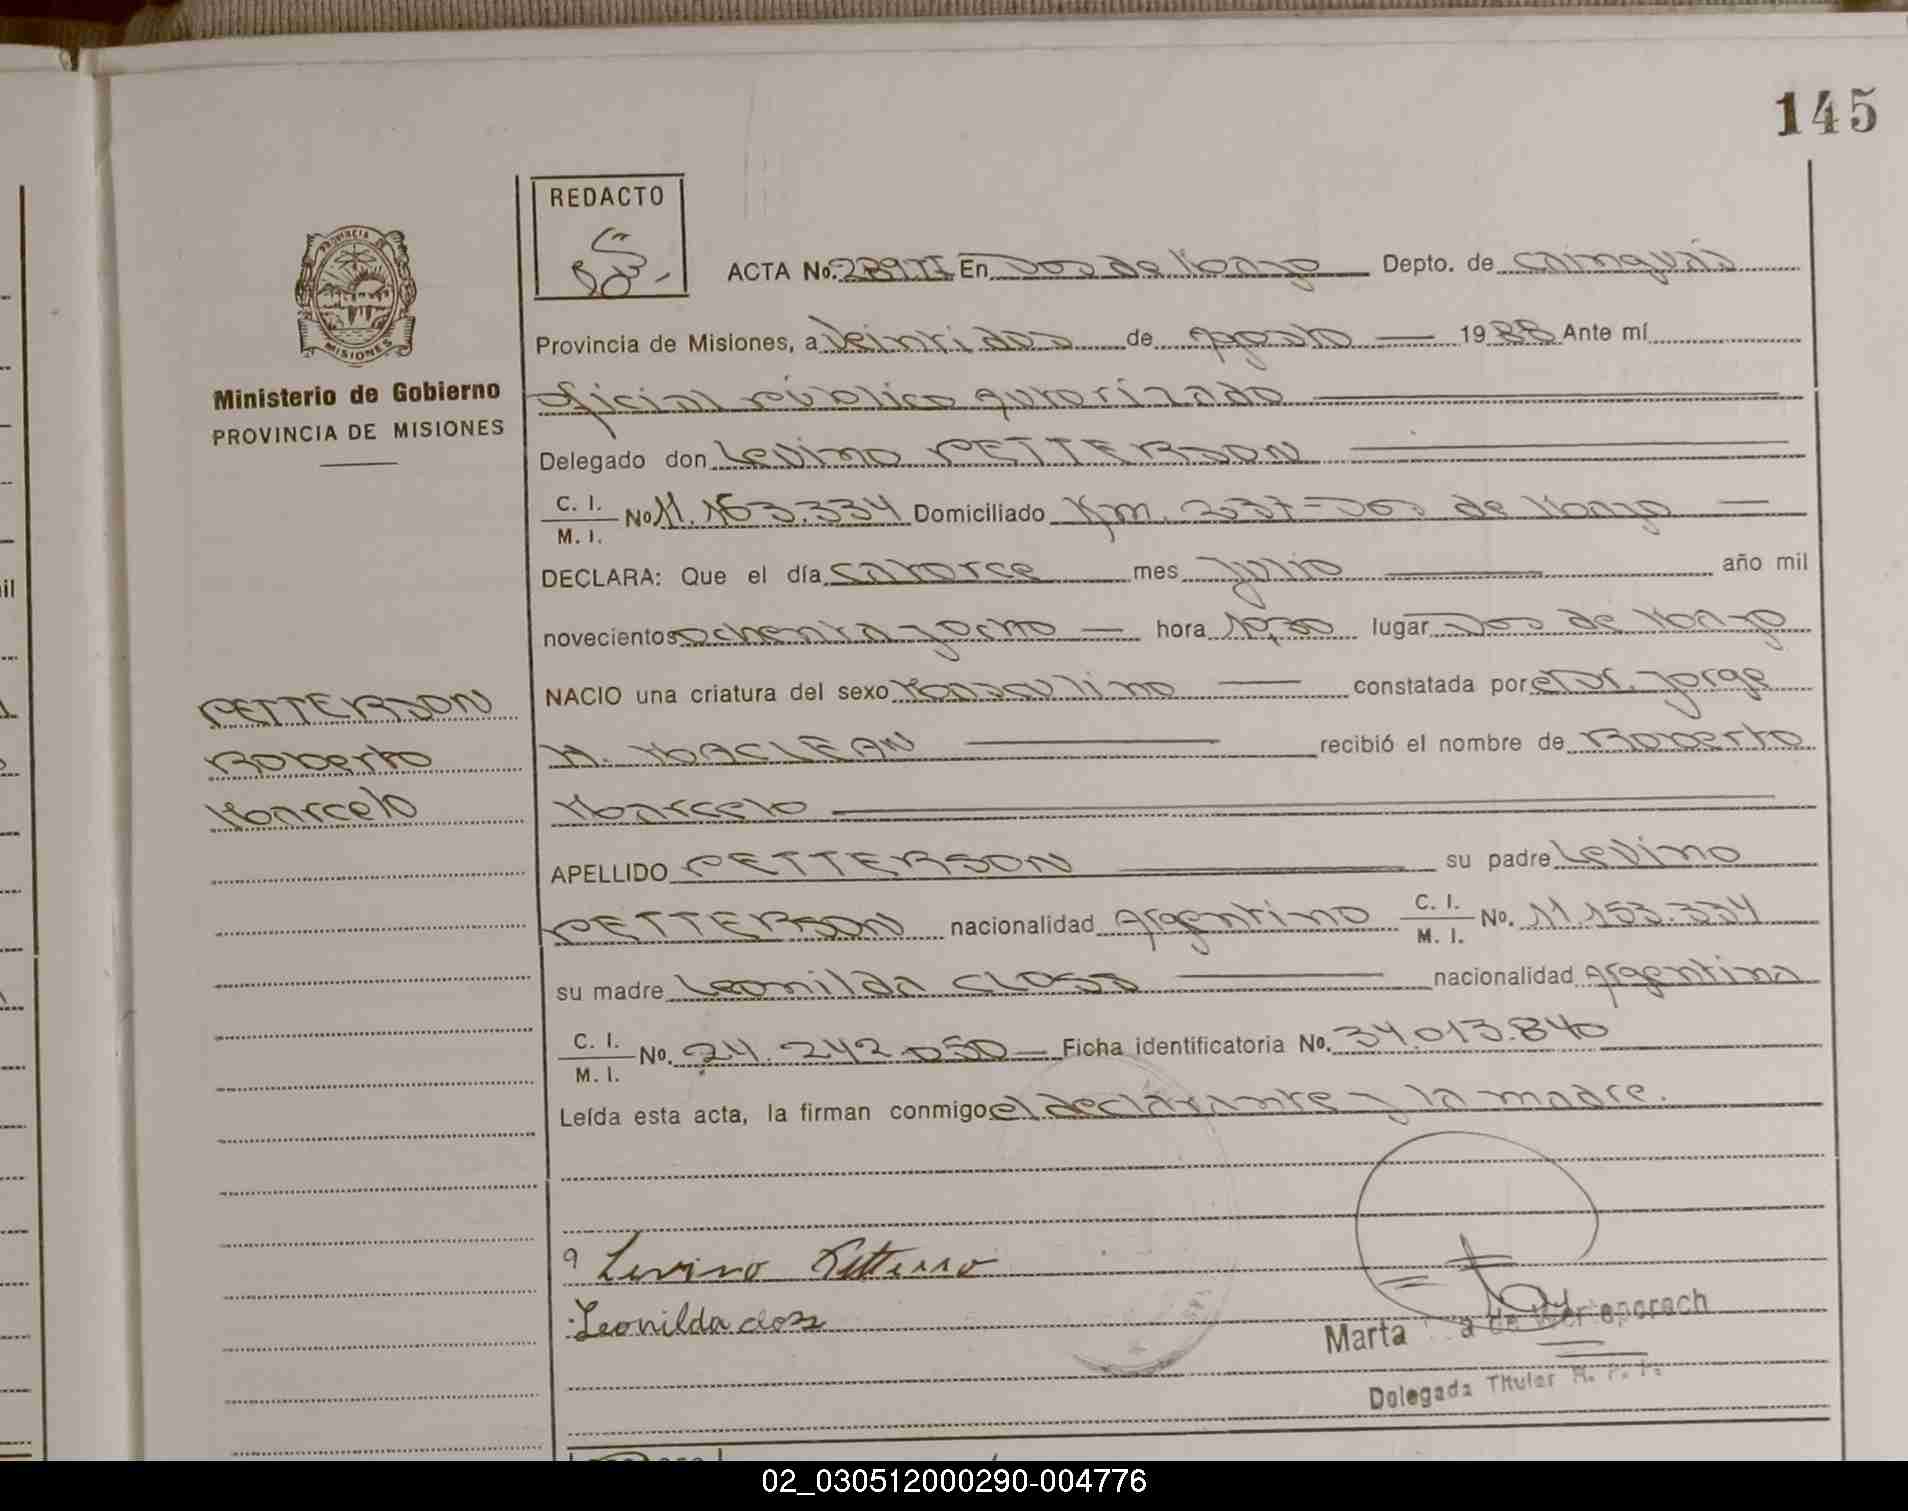 145
REDACTO
PROVINCIA DE
MISIONES
Ministerio de Gobierno
PROVINCIA DE MISIONES
ACTA No. 289 TI En Dos de Mayo Depto. de Cainguás
Provincia de Misiones, a Veintidos de Agosto 1988 Ante mí
oficial público autorizado
Delegado don Levino PETTERSON
C. I.
M. I. No 11.153.334 Domiciliado Km. 237-Dos de Mayo
DECLARA: Que el día catorce mes Julio año mil
novecientos ochenta y ocho hora 10,30 lugar Dos de Mayo
NACIO una criatura del sexo Masculino constatada por el Dr. Jorge
M. MACLEAN recibió el nombre de Roberto
Marcelo
PETTERSON
Roberto
Marcelo
APELLIDO PETTERSON su padre Levino
PETTERSON nacionalidad Argentino C. I. M. I. No. 11.153.334
su madre Leonilda CLOSS nacionalidad Argentina
C. I.
M. I. No. 24.242.050 Ficha identificatoria No. 34.013.840
Leída esta acta, la firman conmigo el declarante y la madre.
Levino
Leonilda closs
Marta de
Delegada Titular
02_030512000290-004776